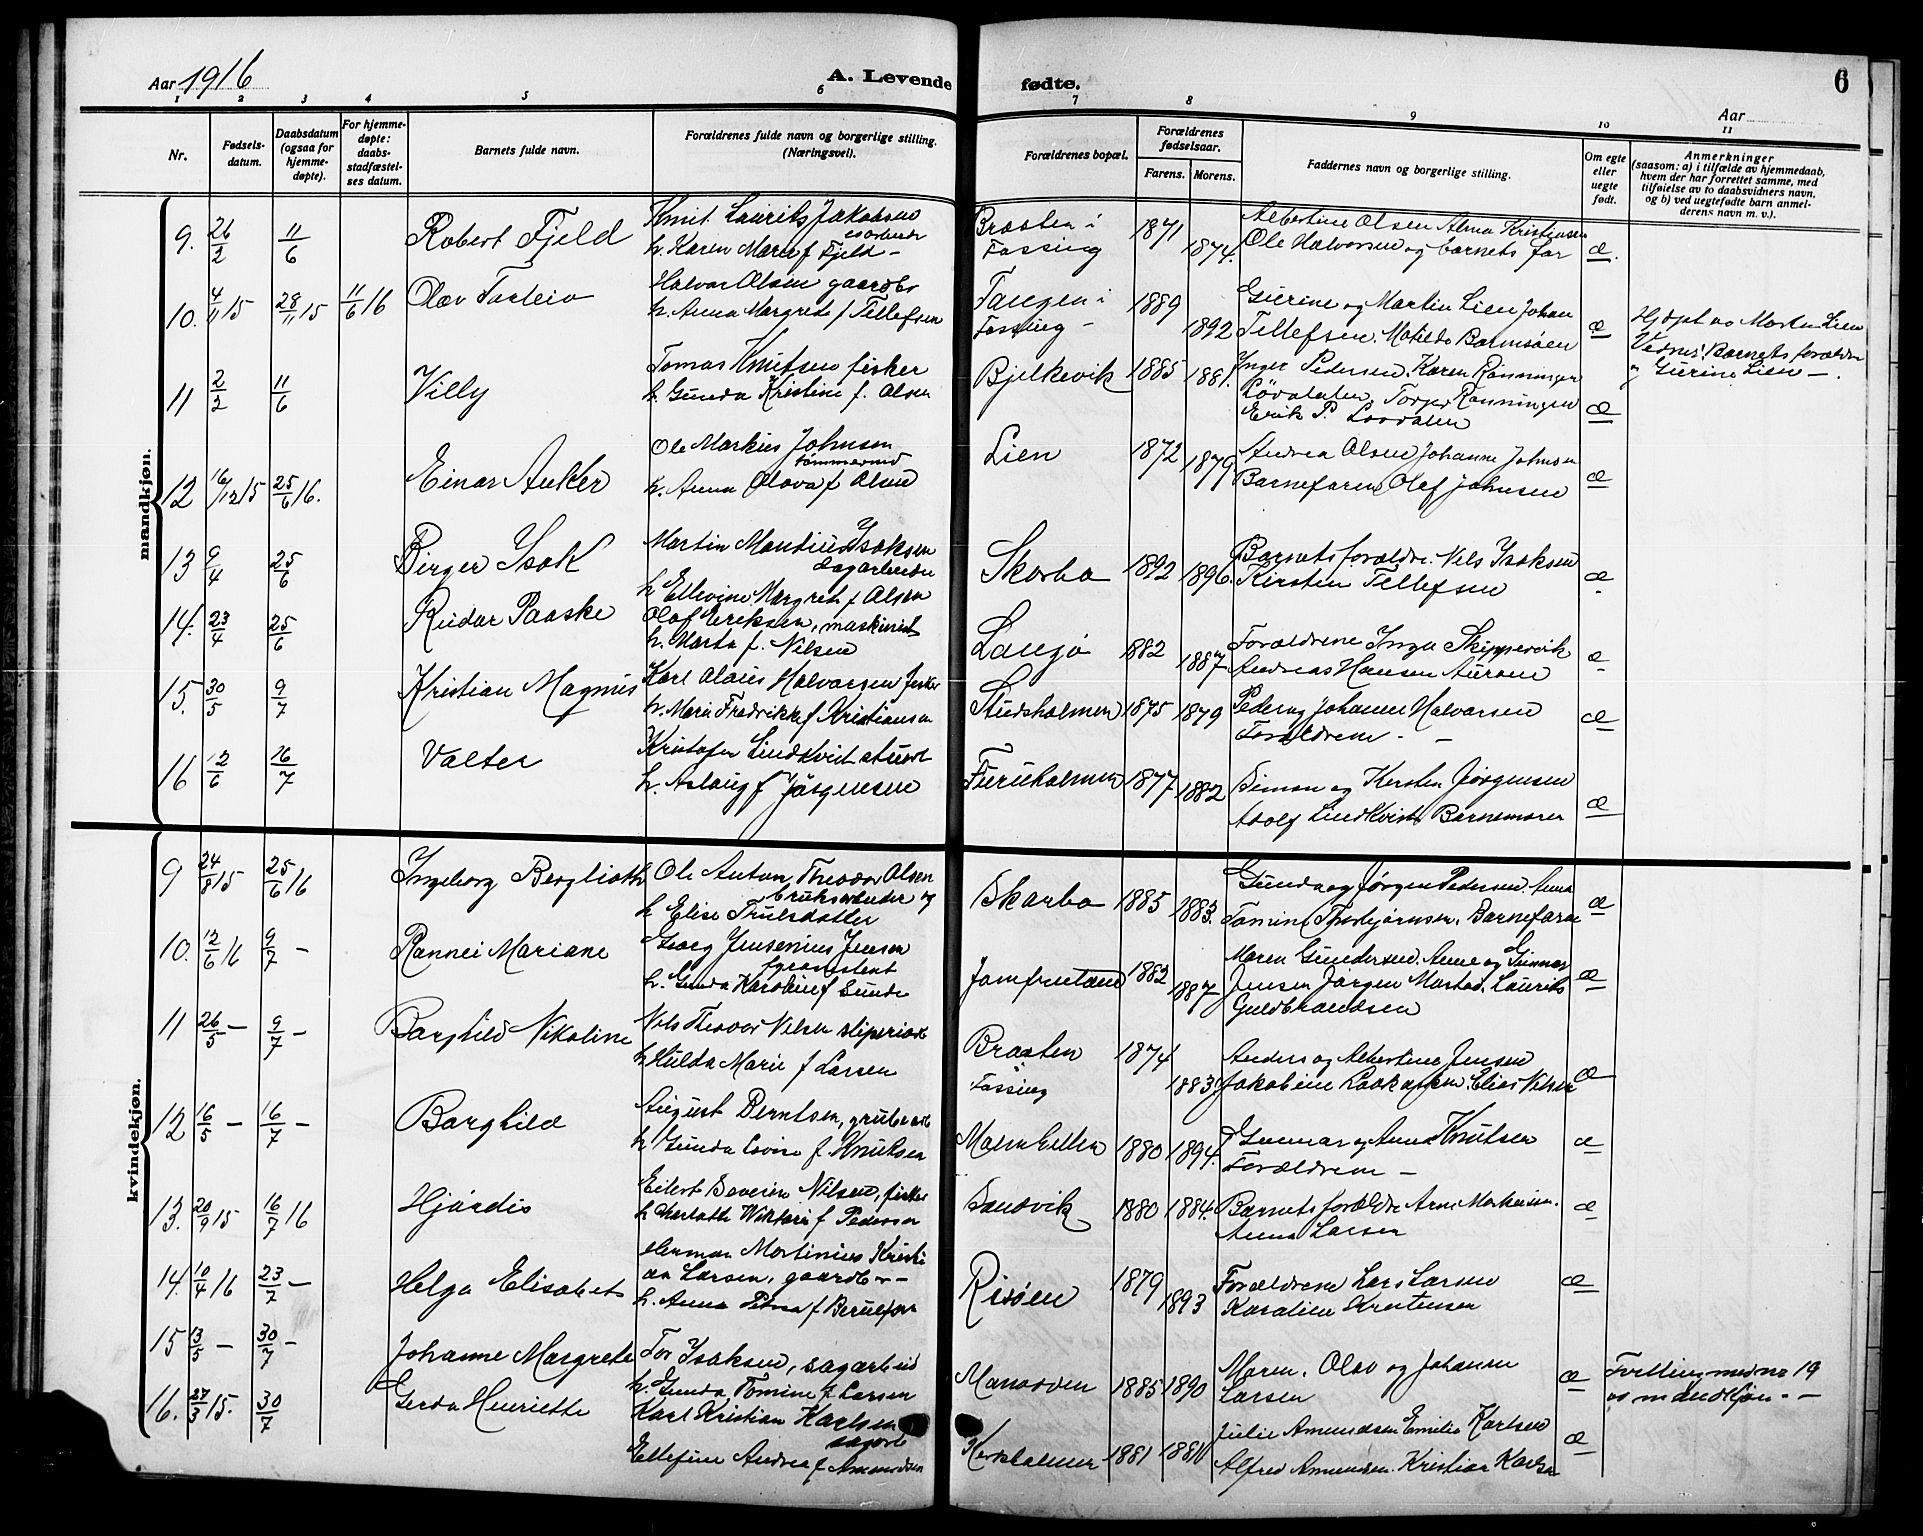 Aar 1916
A. Levende fødte.
6
Aar
1 2 3 4 5 6 7 8 9 10 11
Nr.
Fødsels-datum.
Daabsdatum (ogsaa for hjemme-døpte).
For hjemme-døpte: daabs-stadfæstel-ses datum.
Barnets fulde navn.
Forældrenes fulde navn og borgerlige stilling. (Næringsvei).
Forældrenes bopæl.
Forældrenes fødselsaar.
Farens. Morens.
Faddernes navn og borgerlige stilling.
Om egte eller uegte født.
Anmerkninger
(saasom: a) i tilfælde av hjemmedaab,
hvem der har forrettet samme, med
tilføielse av to daabsvidners navn,
og b) ved uegtefødte barn anmel-
derens navn m. v.).
mandkjøn.
9. 26/2 11/6 Robert Fjeld Knut Laurits Jakobsen
h. Karen Marie f Fjeld - Braaten i Fossing 1871 1874. Albertine Olsen Alma Kristensen
Ole Halvorsen og barnets far æ.
10. 4/11 15 28/11 15 11/6 16 Olav Torleiv Halvor Olsen gaardbr
h. Anna Margrete f Tellefsen Tangen i Fossing - 1889 1892 Gurine og Martin Lien Johan
Tellefsen. Matilde æ Hjdpt av Martin Lien
Vidner: Barnets forældre
og Gurine Lien -.
11 2/2 11/6 Villy Tomas Knutsen fisker
h. Gunda Kristine f. Olsen Bjelkevik 1885 1881. Inger Pedersen. Karen Rønningen
Løvdalen, Torger Rønningen
Erik P. Lovdalen æ
12 16/12 15 25/6 16. Einar Anker Ole Markus Johnsen tømmermd
h. Anna Olava f Olsen Lien 1872 1879 Andrea Olsen Johanne Johnsen
Barnefaren Olaf Johnsen æ
13 9/4 25/6 Birger Isak Martin Mandius Isaksen dagarbeider
h Ellevine Margrete f Olsen Skarbo 1892 1896. Barnets forældre. Nils Isaksen
Kirsten Tellefsen æ
14. 23/4 25/6 Reidar Paaske Olaf Eriksen, maskinist
h. Marta f. Nilsen Langø 1882 1887 Forældrene Inga Skippervik
Andreas Hansen æ
15. 30/5 9/7 Kristian Magnus Karl Olaus Halvorsen fisker
h. Marie Fredrikke f Kristiansen Studsholmen 1875 1879 Peder og Johanne Halvorsen
Forældrene - æ
16 12/6 16/7 Valter Kristofer Lindkvist
h. Aslaug f Jörgensen Furuholmen 1877 1882 Simon og Kirsten Jørgensen
Adolf Lindkvist Barnemoren æ
kvindekjøn.
9 24/8 15 25/6 16 Ingeborg Berglioth Ole Anton Theodor Olsen bruksarbeider og
h Elise Trulsdatter Skarbo 1885 1883. Gunda og Jørgen Pedersen. Anna
Tomine Thorbjørnsen. Barnefaren æ
10. 12/6 16 9/7 - Rannei Mariane Georg Jensenius Jensen fyrassistent
h. Gunda Karoline f Sunde Jomfruland 1882 1887 Maren Gundersen. Anne og Gunnar
Jensen Jørgen Laurits
Guldbrandsen æ
11 26/5 - 9/7 - Borghild Nikoline Nils Theodor Nilsen sliperiarb
h Hulda Marie f Larsen Braaten Fossing 1874 1883 Anders og Albertine Jensen
Jakobine Elias Nilsen æ
12 16/5 - 16/7 - Borghild August Berntsen, grubearb
h Gunda Lovise f Knutsen 1880 1894. Gunnar og Anna Knutsen
Forældrene - æ
13. 20/9 15 16/7 16 Hjördis Eilert Severin Nilsen, fisker
h Charlotte Viktoria f Pedersen Sandvik 1880 1884. Barnets forældre Arne
Anna Larsen æ
14. 10/4 16 23/7 - Helga Elisabet Herman Martinius Kristi
an Larsen, gaardbr -
h. Anna Petrea f Risøen 1879 1893 Forældrene Lars Larsen
Karoline Kristensen æ
15 13/5 - 30/7 - Johanne Margrete Tor Isaksen, sagarbeid
h. Gunda Tomine f Larsen 1885 1890 Maren, Olav og Johanne
Larsen æ Tvilling med no 19
av mandkjøn. -
16. 27/3 15. 30/7 Gerda Henriette Karl Kristian Karlsen sagarb
Ellefine Andrea f Amundsen 1881 1881 Julie Amundsen Emilie Karlsen
Alfred Amundsen. Kristian Karlsen æ